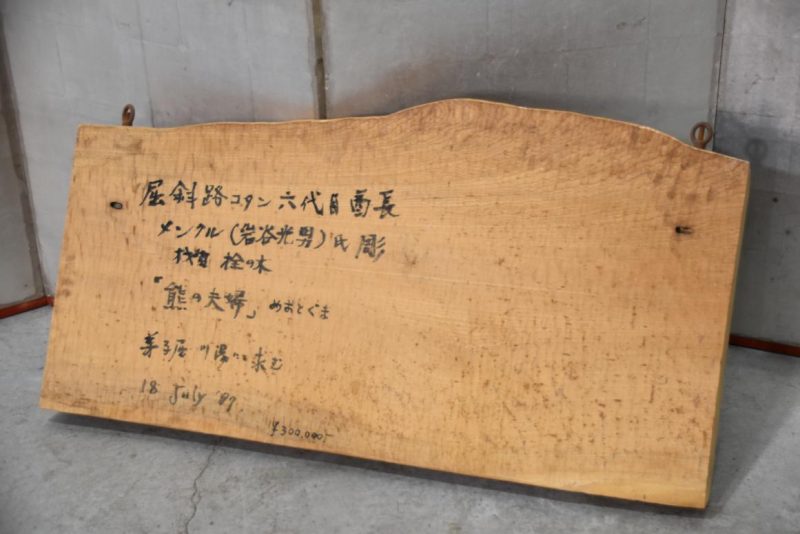 屈斜路コタン六代目酋長
メンクル(岩谷光男)氏彫
材質 栓の木
「熊の夫婦」めおとぐま
弟子屈 川湯にて求む
18 July '87
¥300,000-